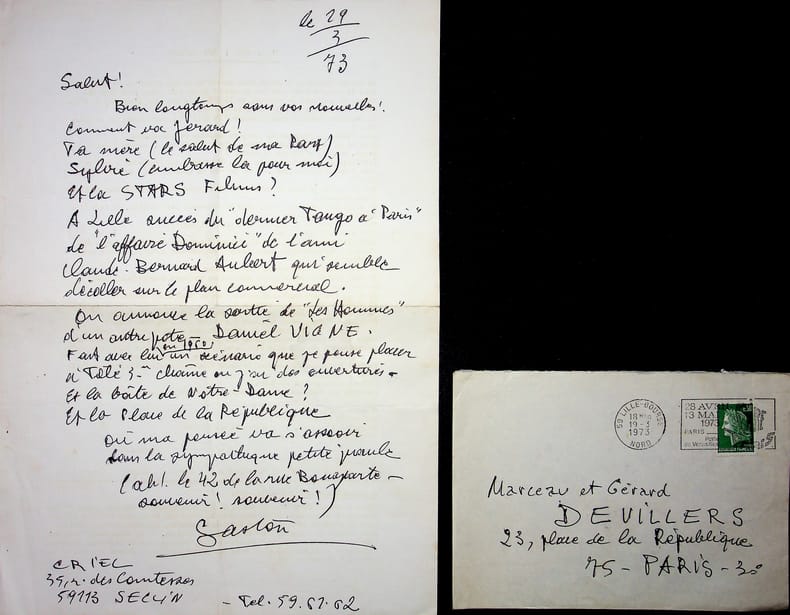 le 19
3
73
Salut!
Bien longtemps sans vos nouvelles!
Comment va Jérard!
Ta mère (le salut de ma Part)
Sylvie (embrasse la pour moi)
Et la STARS Films?
A Lille succès du "dernier Tango à Paris"
de "l'affaire Dominici" de l'ami
Claude-Bernard Aubert qui semble
décoller sur le plan commercial.
On annonce la sortie de "Les Hommes"
d'un autre pote Daniel VIGNE.
Fait avec lui un scénario que je pense placer
en 1960
à Télé 3è chaîne où j'ai des ouvertures -
Et la Boîte de Notre-Dame?
Et la Place de la République
où ma pensée va s'asseoir
dans la sympathique petite
(ah! le 42 de la rue Bonaparte -
souvenir! souvenir!)
Gaston
CRIEL
35, r. des Comtesses
59113 SECLIN
- Tel. 59.61.62
59 LILLE-BOURSE
18H
19-3
1973
NORD
28 AVRIL
13 MAI
1973
PARIS
Marceau et Gérard
DEVILLERS
23, place de la République
75 - PARIS - 3è